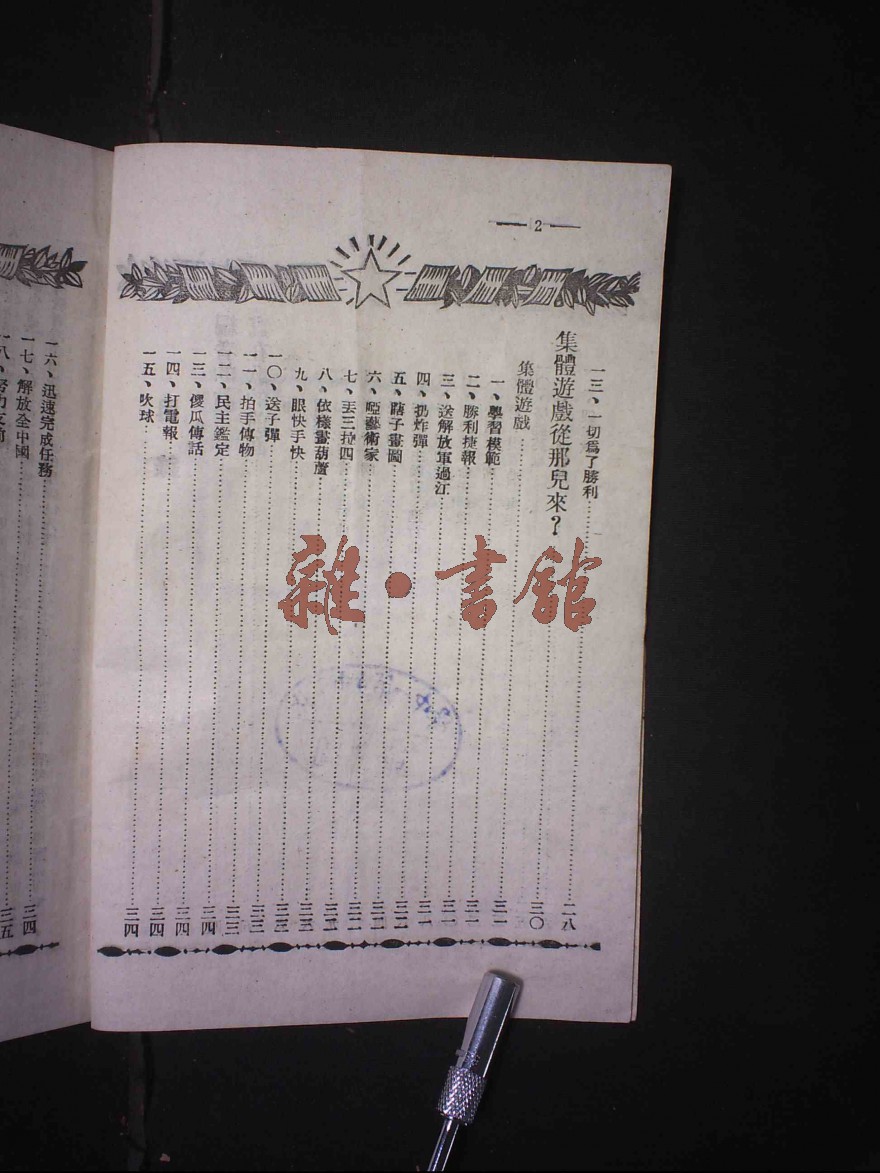 2
一三、一切爲了勝利……二八
集體遊戲從那兒來?……三〇
集體遊戲……三一
一、學習模範……三一
二、勝利捷報……三一
三、送解放軍過江……三一
四、扔炸彈……三二
五、瞎子畫圖……三二
六、啞藝術家……三二
七、丟三拉四……三二
八、依樣畫葫蘆……三三
九、眼快手快……三三
一〇、送子彈……三三
一一、拍手傳物……三三
一二、民主鑑定……三四
一三、傻瓜傳話……三四
一四、打電報……三四
一五、吹球……三四
一六、迅速完成任務……三四
一七、解放全中國……三五
雜·書館